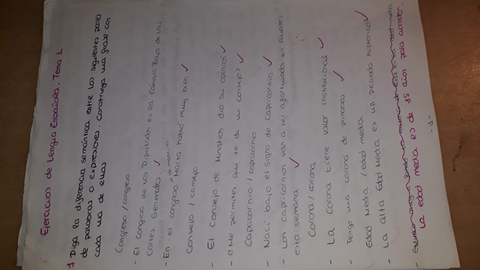 Ejercicios de Lengua Española. Tema 1.
1 Diga la diferencia semántica entre los siguientes pares
de palabras o expresiones. Construya una frase con
cada una de ellas
Congreso / congreso
- El Congreso de los Diputados es la Cámara Baja de las
Cortes Generales ✓
- En el congreso María habló muy bien ✓
Consejo / consejo
- El Consejo de Ministros dio su opinión ✓
- ¿Me permites que te dé un consejo? ✓
Capricornio / capricornio
- Nací bajo el signo de Capricornio ✓
- Los capricornios van a ser afortunados
esta semana ✓
Corona / corona
- La Corona tiene valor institucional ✓
- Tengo una corona de ✓
Edad Media / edad media
- La alta Edad Media es un periodo histórico ✓
La edad media es de 15 años para acceder.